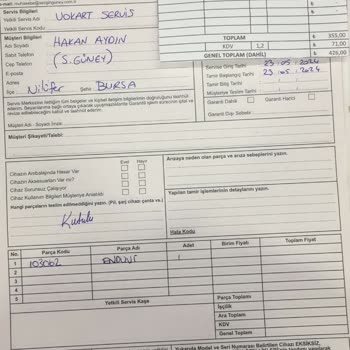 Servis Bilgileri
Yetkili Servis Adı VOKART SERVİS
Yetkili Servis Kodu
Müşteri Bilgileri
Adı Soyadı HAKAN AYDIN
Sabit Telefon (S. GÜNEY)
Cep Telefon
E-posta
Adres
İlçe Nilüfer Şehir BURSA
TOPLAM ₺ 355,00
KDV 1,2 ₺ 71,00
GENEL TOPLAM (DAHİL) ₺ 426,00
Servise Giriş Tarihi 23.05.2024
Tamir Başlangıç Tarihi 23.05.2024
Tamir Bitiş Tarihi
Müşteriye Teslim Tarihi
Garanti Dahili Garanti Harici
Garanti Dışı Sebebi
Müşteri Adı - Soyadı İmza
Müşteri Şikayeti/Talebi:
Evet Hayır
Cihazın Ambalajında Hasar Var
Cihazın Aksesuarları Var mı?
Cihaz Sorunsuz Çalışıyor
Cihaz Kullanım Bilgileri Müşteriye Anlatıldı
Hangi parçaların teslim edilmediğini yazın. (Pil, şarj cihazı çanta vs.)
Kutulu
Arızaya neden olan parça ve arıza sebeplerini yazın.
Yapılan tamir işlemlerinin detaylarını yazın.
Hata Kodu
No. Parça Kodu Parça Adı Adet Birim Fiyatı Toplam Fiyat
1 103062 1
2
3
4
5
Yetkili Servis Kaşe
Parça Toplamı
İşçilik
Ara Toplam
KDV
Genel Toplam
Yukarıda Model ve Seri Numarası Belirtilen Cihazı EKSİKSİZ,